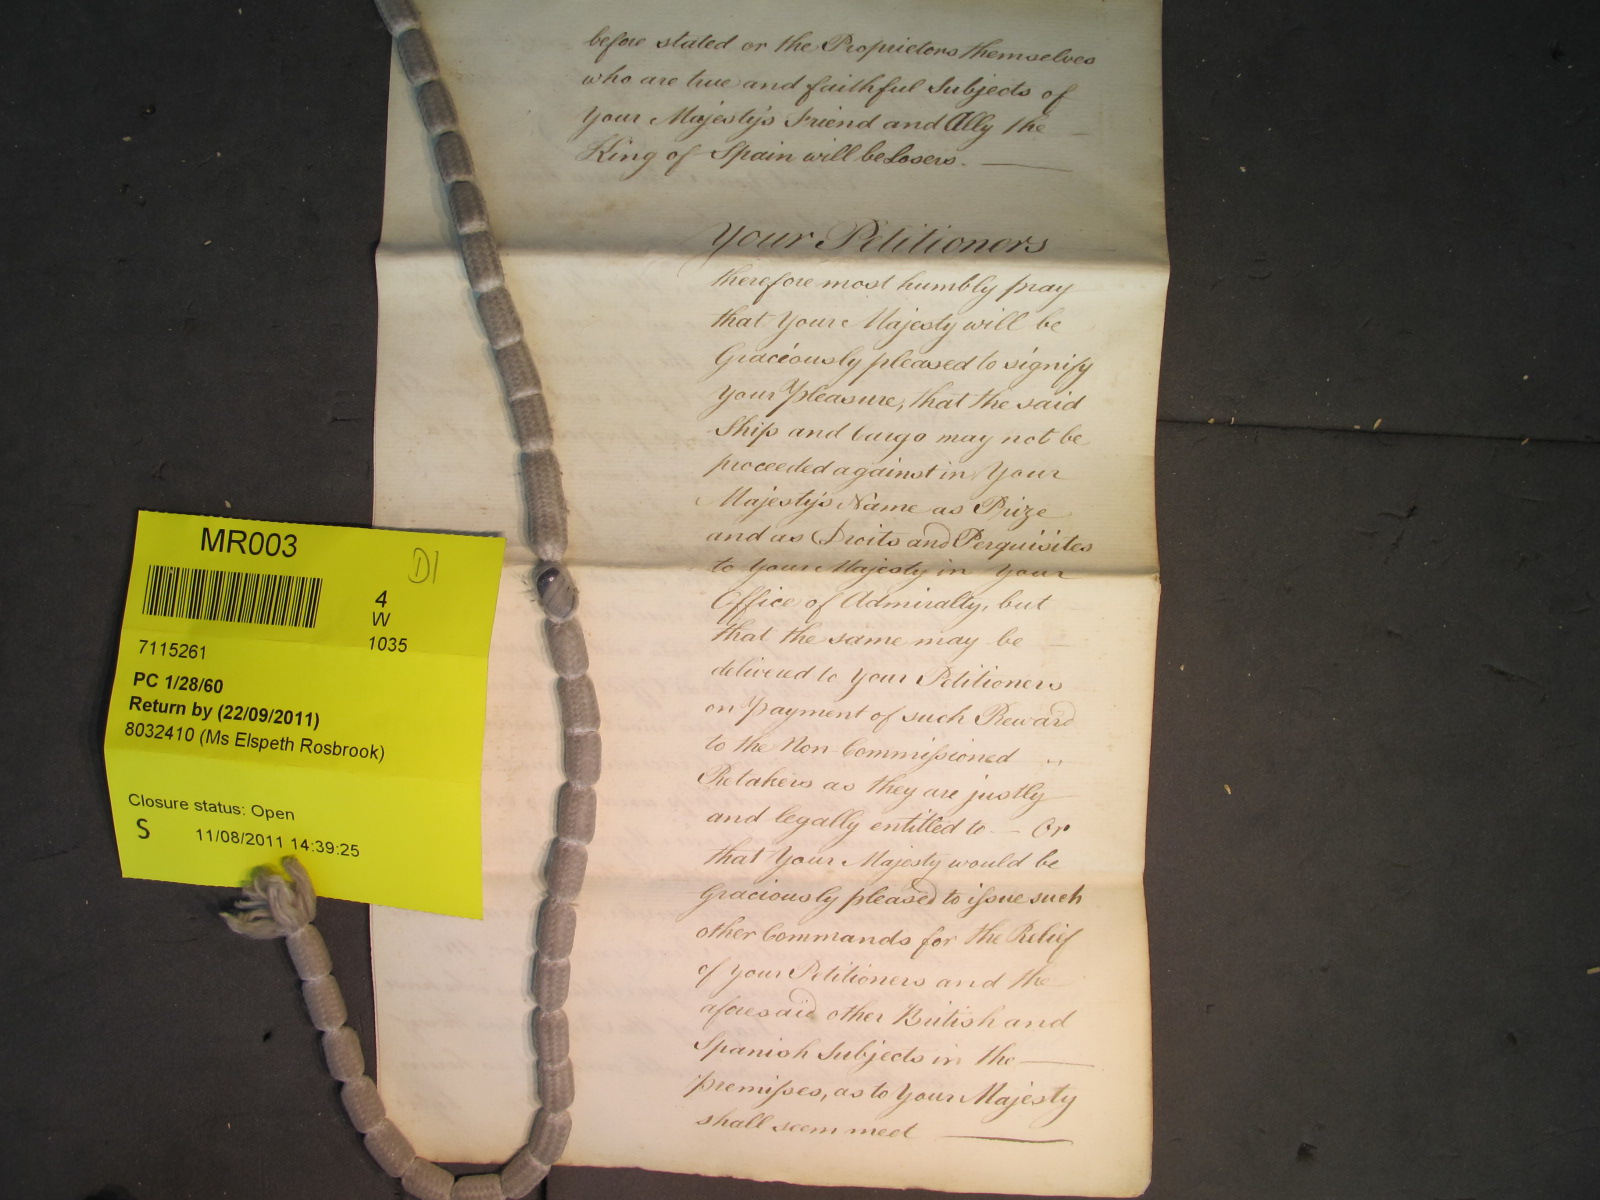 before stated or the Proprietors themselves
who are true and faithful Subjects of
Your Majesty's Friend and Ally the
King of Spain will be Losers.
Your Petitioners
therefore most humbly pray
that Your Majesty will be
Graciously pleased to signify
your Pleasure, that the said
Ship and Cargo may not be
proceeded against in Your
Majesty's Name as Prize
and as Droits and Perquisites
to Your Majesty in Your
Office of Admiralty, but
that the same may be
delivered to your Petitioners
on Payment of such Reward
to the Non Commissioned
Retakers as they are justly
and legally entitled to — Or
that Your Majesty would be
Graciously pleased to issue such
other Commands for the Relief
of your Petitioners and the
aforesaid other British and
Spanish Subjects in the
premisses, as to Your Majesty
shall seem meet
MR003
D1
4
W
1035
7115261
PC 1/28/60
Return by (22/09/2011)
8032410 (Ms Elspeth Rosbrook)
Closure status: Open
S
11/08/2011 14:39:25